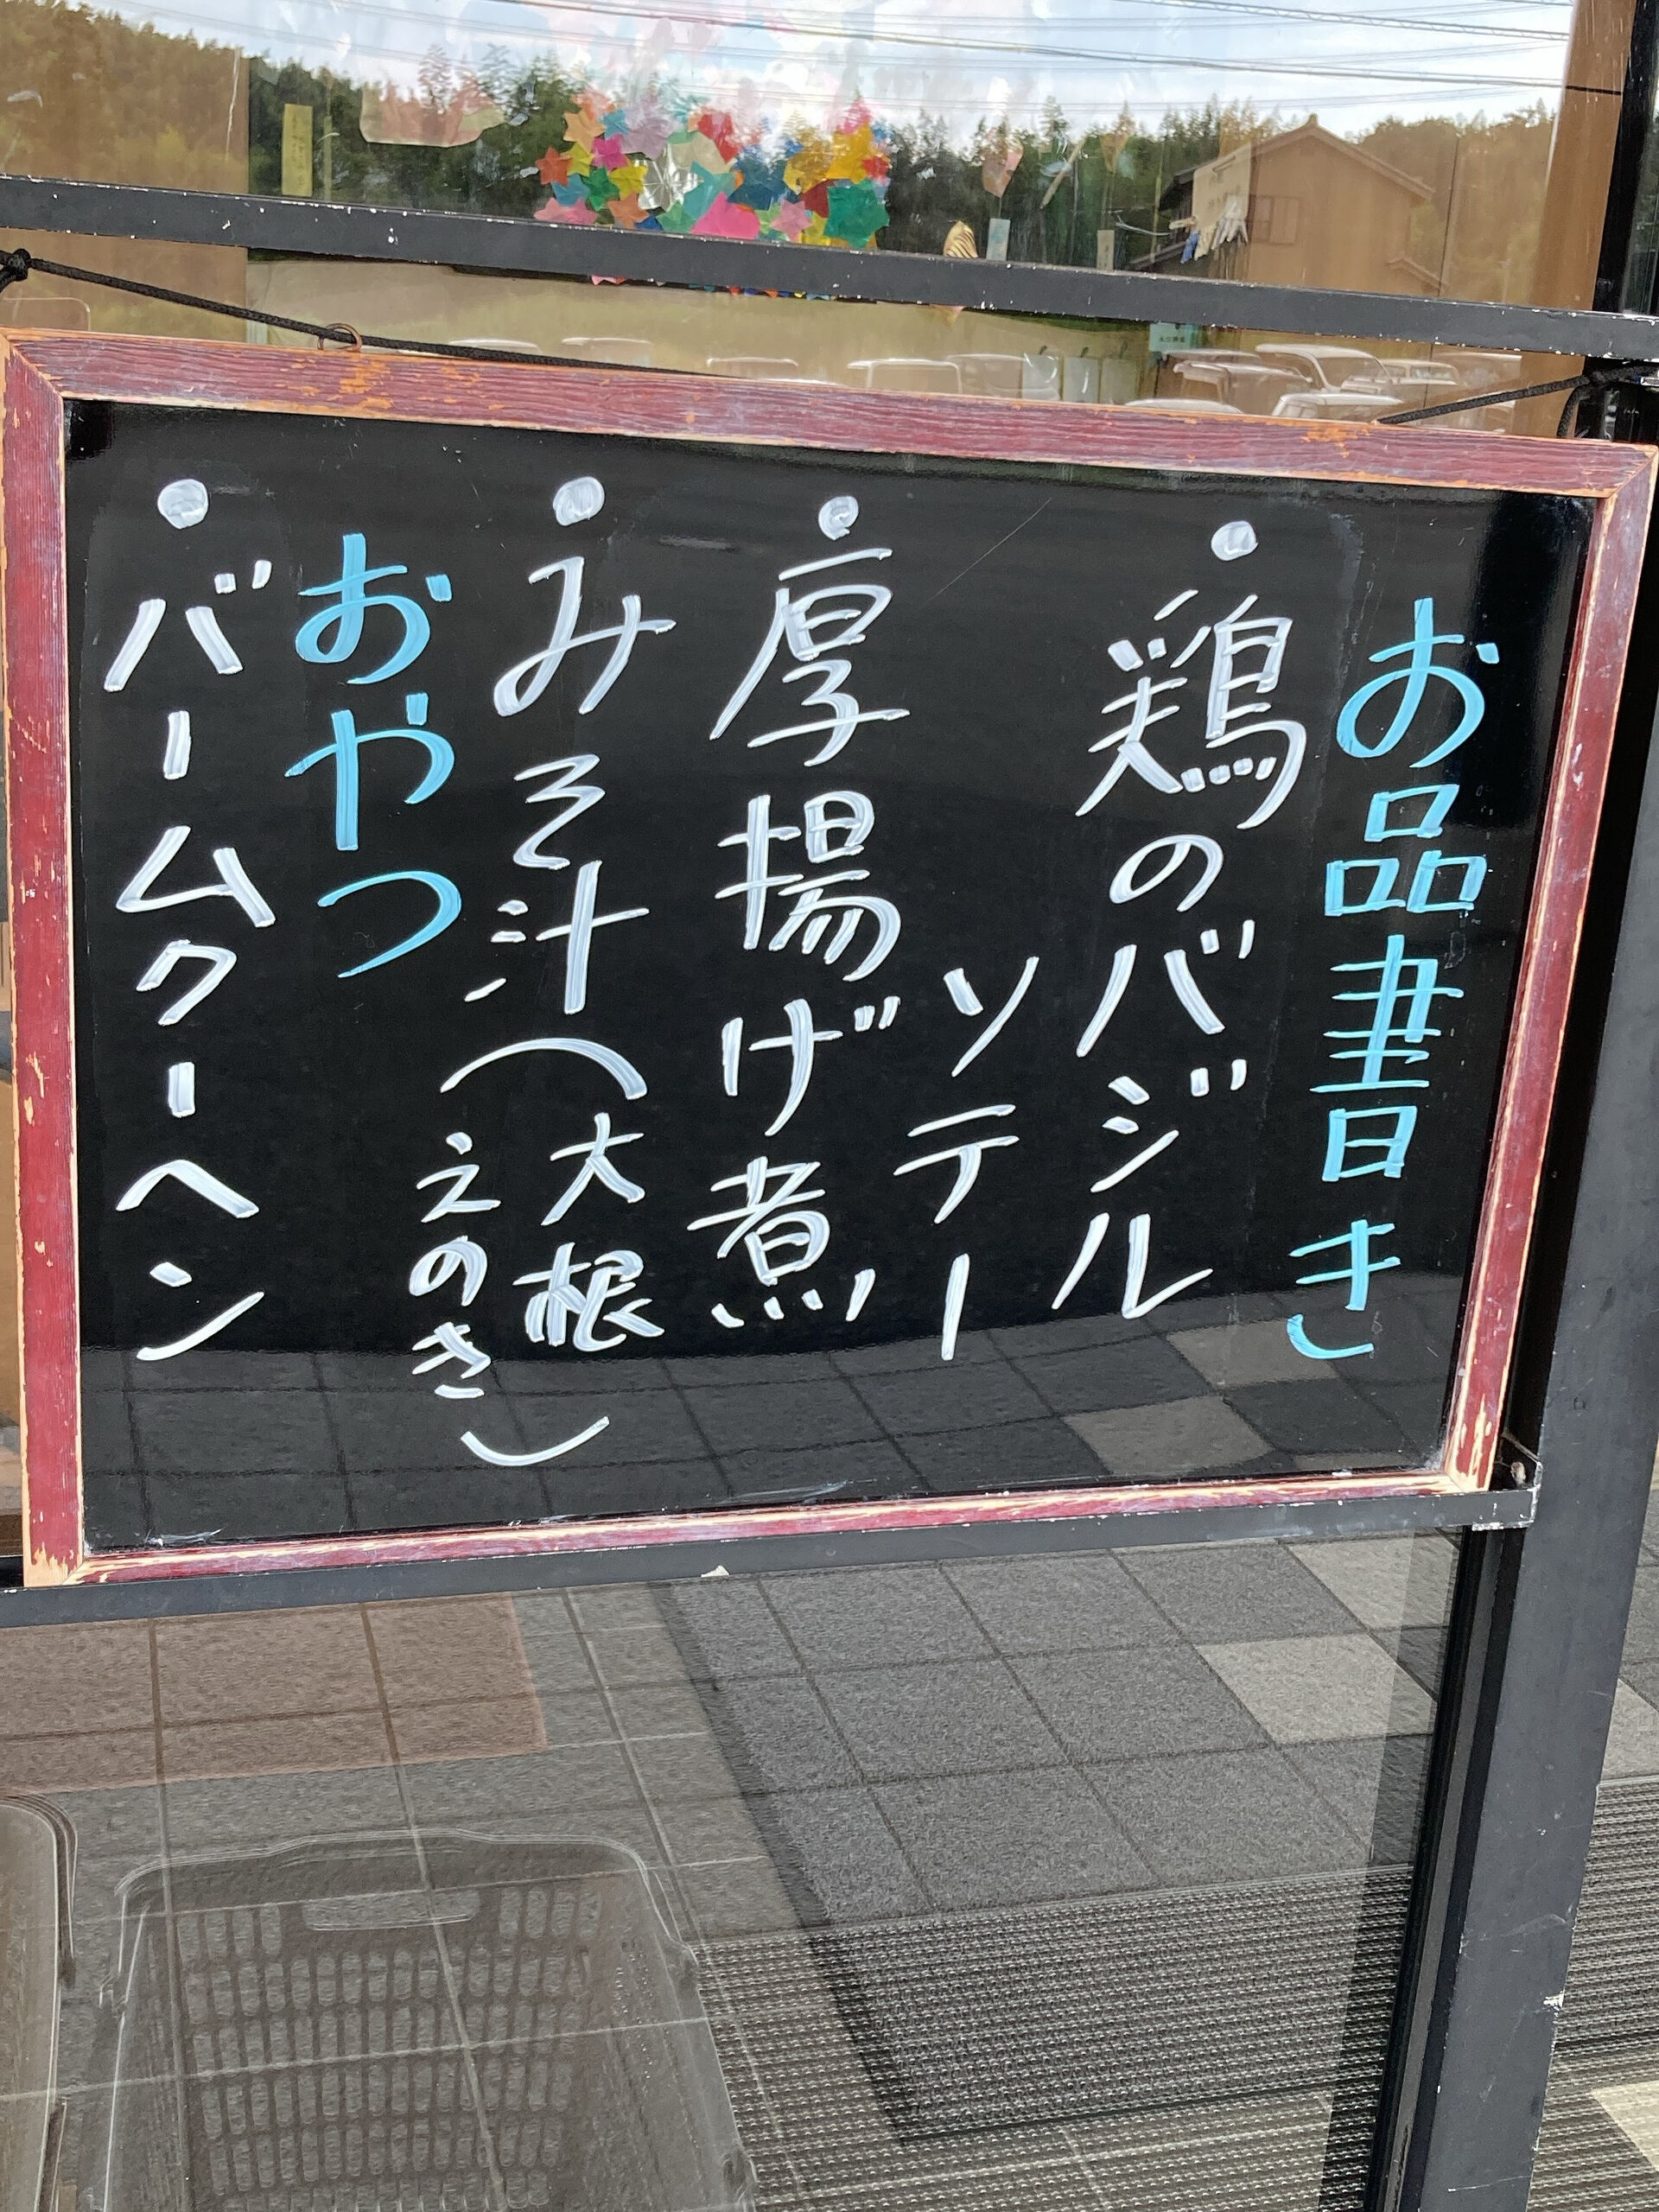 お品書き
・鶏のバジル
ソテー
・厚揚げ煮
・みそ汁(大根
えのき)
おやつ
・バームクーヘン